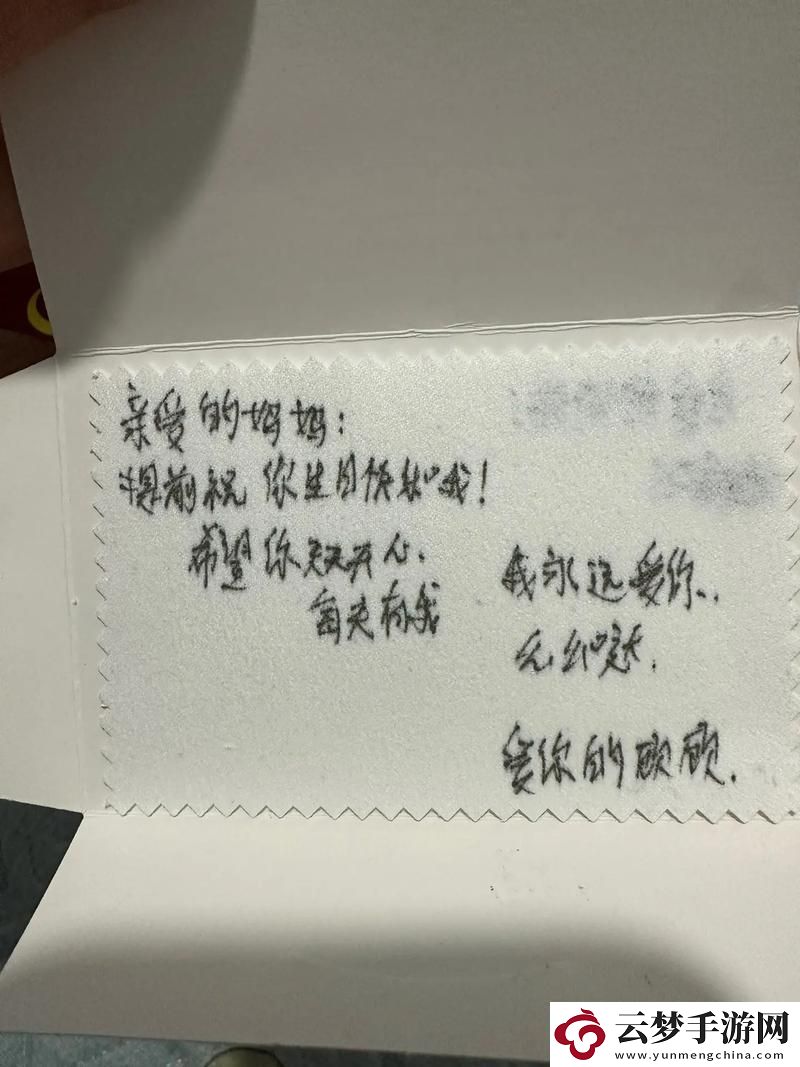 亲爱的妈妈：
提前祝你生日快乐哦！
希望你天天开心、
每天有我
我永远爱你、
无红哒.
爱你的顾顾.
云梦手游网
www.yunmengchina.com